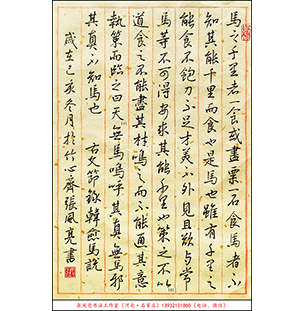 馬之千里者一食或盡粟一石食馬者不
知其能千里而食也是馬也雖有千里之
能食不飽力不足才美不外見且欲與常
馬等不可得安求其能千里也策之不以
道食之不能盡其材鳴之而不能通其意
執策而臨之曰天無馬嗚呼其真無馬邪
其真不知馬也 古文節錄韓愈馬說
歲在己亥冬月於竹心齋張風亮書
张风亮书法工作室（河北·石家庄）13932101080（电话、微信）